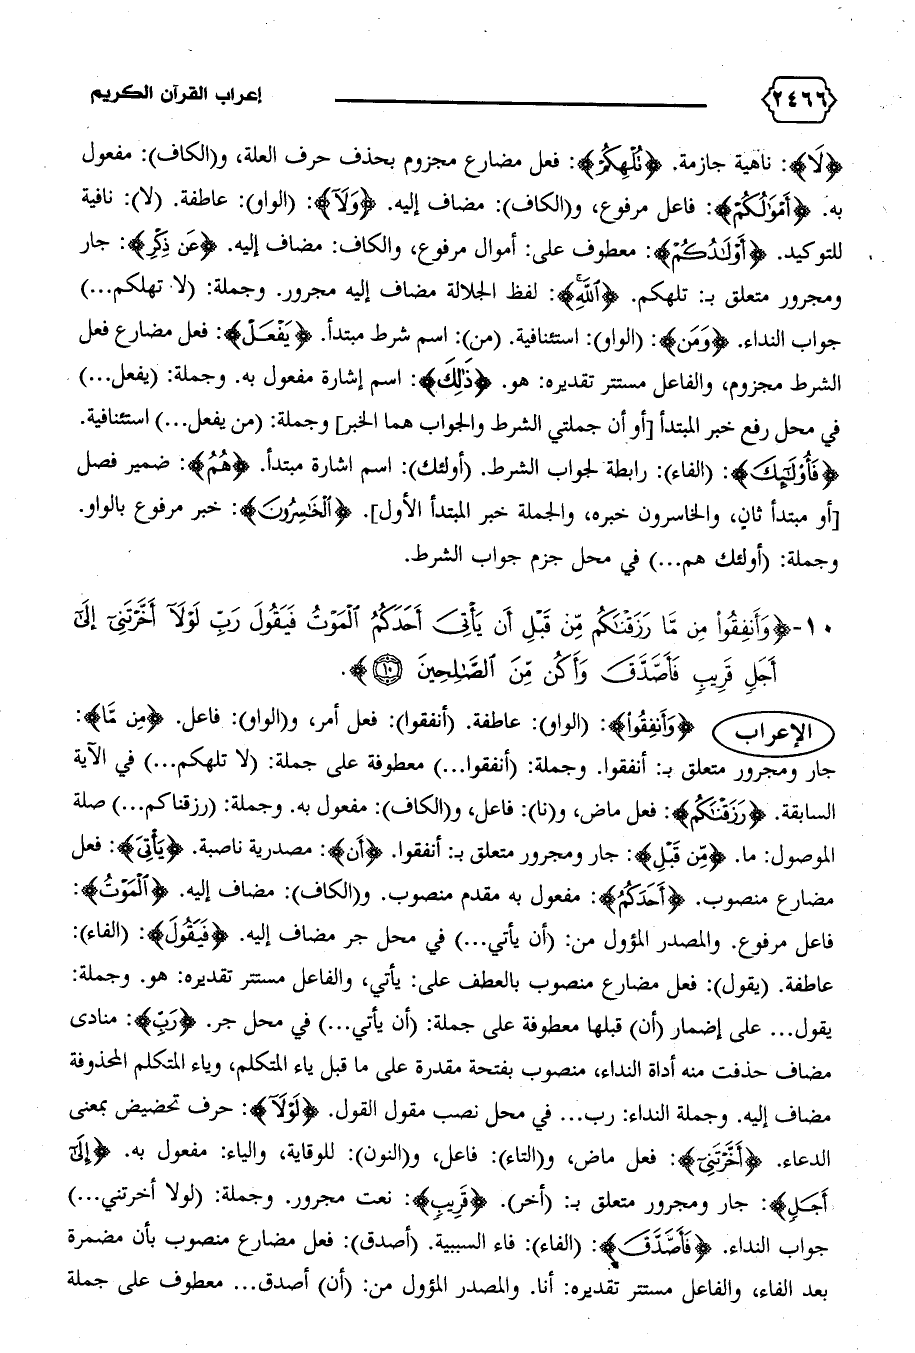 ٢٤٦٦ إعراب القرآن الكريم
﴿لَا﴾: ناهية جازمة. ﴿تُلْهِكُمْ﴾: فعل مضارع مجزوم بحذف حرف العلة، و(الكاف): مفعول
به. ﴿أَمْوَٰلُكُمْ﴾: فاعل مرفوع، و(الكاف): مضاف إليه. ﴿وَلَآ﴾: (الواو): عاطفة. (لا): نافية
للتوكيد. ﴿أَوْلَٰدُكُمْ﴾: معطوف على: أموال مرفوع، والكاف: مضاف إليه. ﴿عَن ذِكْرِ﴾: جار
ومجرور متعلق بـ: تلهكم. ﴿ٱللَّهِۚ﴾: لفظ الجلالة مضاف إليه مجرور. وجملة: (لا تهلكم...)
جواب النداء. ﴿وَمَن﴾: (الواو): استئنافية. (من): اسم شرط مبتدأ. ﴿يَفْعَلْ﴾: فعل مضارع فعل
الشرط مجزوم، والفاعل مستتر تقديره: هو. ﴿ذَٰلِكَ﴾: اسم إشارة مفعول به. وجملة: (يفعل...)
في محل رفع خبر المبتدأ [أو أن جملتي الشرط والجواب هما الخبر] وجملة: (من يفعل...) استئنافية.
﴿فَأُوْلَٰٓئِكَ﴾: (الفاء): رابطة لجواب الشرط. (أولئك): اسم اشارة مبتدأ. ﴿هُمُ﴾: ضمير فصل
[أو مبتدأ ثانٍ، والخاسرون خبره، والجملة خبر المبتدأ الأول]. ﴿ٱلْخَٰسِرُونَ﴾: خبر مرفوع بالواو.
وجملة: (أولئك هم...) في محل جزم جواب الشرط.
١٠-﴿وَأَنفِقُواْ مِن مَّا رَزَقْنَٰكُم مِّن قَبْلِ أَن يَأْتِىَ أَحَدَكُمُ ٱلْمَوْتُ فَيَقُولَ رَبِّ لَوْلَآ أَخَّرْتَنِىٓ إِلَىٰٓ
أَجَلٍ قَرِيبٍ فَأَصَّدَّقَ وَأَكُن مِّنَ ٱلصَّٰلِحِينَ ١٠﴾.
الإعراب ﴿وَأَنفِقُواْ﴾: (الواو): عاطفة. (أنفقوا): فعل أمر، و(الواو): فاعل. ﴿مِن مَّا﴾:
جار ومجرور متعلق بـ: أنفقوا. وجملة: (أنفقوا...) معطوفة على جملة: (لا تلهكم...) في الآية
السابقة. ﴿رَزَقْنَٰكُم﴾: فعل ماض، و(نا): فاعل، و(الكاف): مفعول به. وجملة: (رزقناكم...) صلة
الموصول: ما. ﴿مِّن قَبْلِ﴾: جار ومجرور متعلق بـ: أنفقوا. ﴿أَن﴾: مصدرية ناصبة. ﴿يَأْتِىَ﴾: فعل
مضارع منصوب. ﴿أَحَدَكُمُ﴾: مفعول به مقدم منصوب. و(الكاف): مضاف إليه. ﴿ٱلْمَوْتُ﴾:
فاعل مرفوع. والمصدر المؤول من: (أن يأتي...) في محل جر مضاف إليه. ﴿فَيَقُولَ﴾: (الفاء):
عاطفة. (يقول): فعل مضارع منصوب بالعطف على: يأتي، والفاعل مستتر تقديره: هو. وجملة:
يقول... على إضمار (أن) قبلها معطوفة على جملة: (أن يأتي...) في محل جر. ﴿رَبِّ﴾: منادى
مضاف حذفت منه أداة النداء، منصوب بفتحة مقدرة على ما قبل ياء المتكلم، وياء المتكلم المحذوفة
مضاف إليه. وجملة النداء: رب... في محل نصب مقول القول. ﴿لَوْلَآ﴾: حرف تحضيض بمعنى
الدعاء. ﴿أَخَّرْتَنِىٓ﴾: فعل ماض، و(التاء): فاعل، و(النون): للوقاية، والياء: مفعول به. ﴿إِلَىٰٓ
أَجَلٍ﴾: جار ومجرور متعلق بـ: (أخر). ﴿قَرِيبٍ﴾: نعت مجرور. وجملة: (لولا أخرتني...)
جواب النداء. ﴿فَأَصَّدَّقَ﴾: (الفاء): فاء السببية. (أصدق): فعل مضارع منصوب بأن مضمرة
بعد الفاء، والفاعل مستتر تقديره: أنا. والمصدر المؤول من: (أن) أصدق... معطوف على جملة